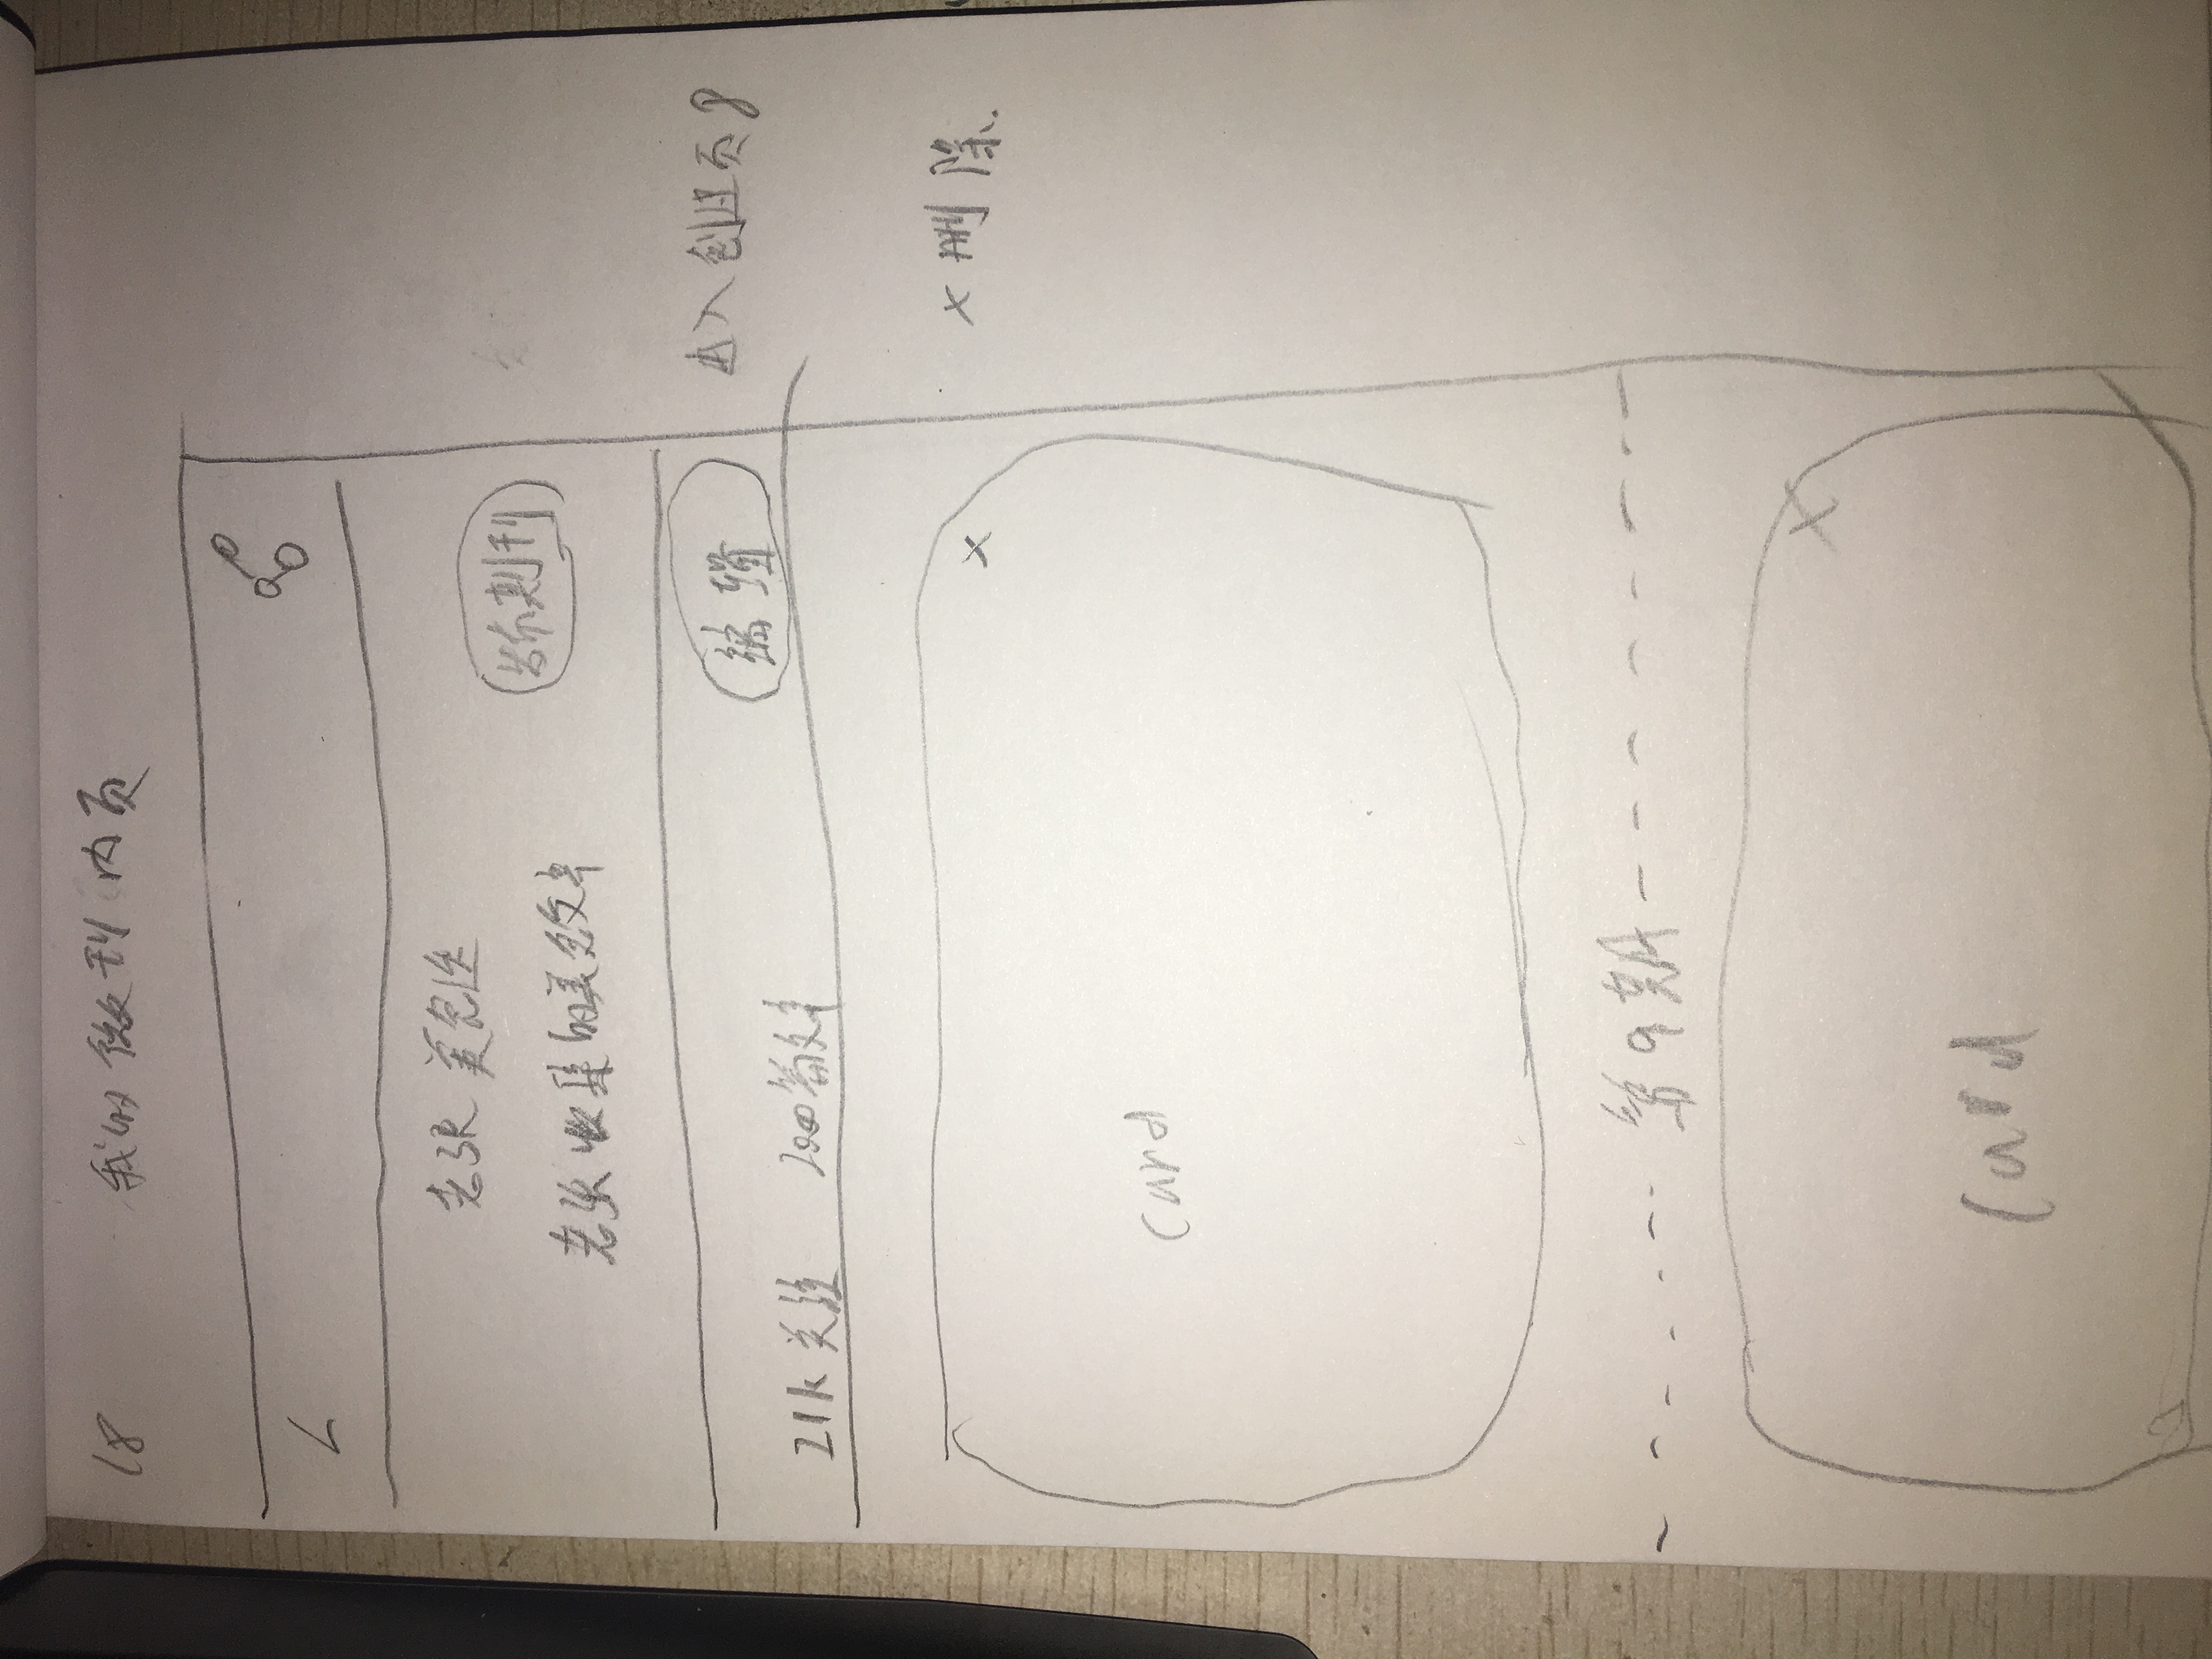 18 我的微刊内页
老张美食送
发布期刊
老张收集的美食文章
编辑
进入创建页8
21k关注 2000篇文章
x
x删除.
card
第9期
x
card